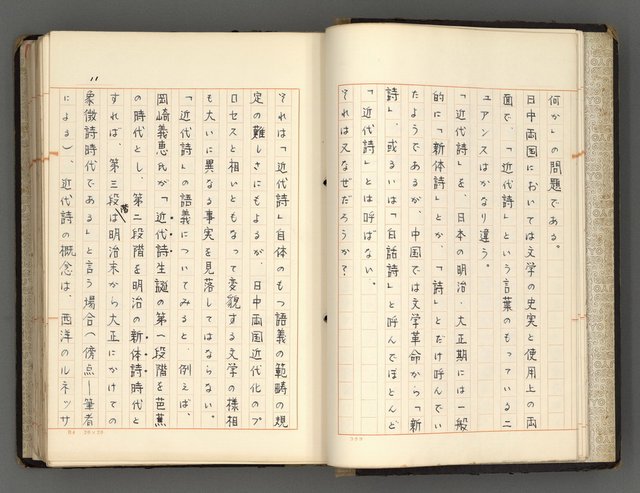 何か」の問題である。
日中両国においては文学の史実と使用上の両
面で、「近代詩」という言葉のもっているニ
ュアンスはかなり違う。
「近代詩」を、日本の明治・大正期には一般
的に「新体詩」とか、「詩」とだけ呼んでい
たようであるが、中国では文学革命から「新
詩」、或るいは「白話詩」と呼んでほとんど
「近代詩」とは呼ばない。
それは又なぜだろうか?
それは「近代詩」自体のもつ語義の範疇の規
定の難しさにもよるが、日中両国近代化のプ
ロセスと相いともなって変貌する文学の様相
も大いに異なる事実を見落してはならない。
「近代詩」の語義についてみると、例えば、
岡崎義恵氏が「近代詩生誕の第一段階を芭蕉
の時代とし、第二段階を明治の新体詩時代と
すれば、第三段階は明治末から大正にかけての
象徴詩時代である」と言う場合(傍点―筆者
による)、近代詩の概念は、西洋のルネッサ
11
B4 20×20